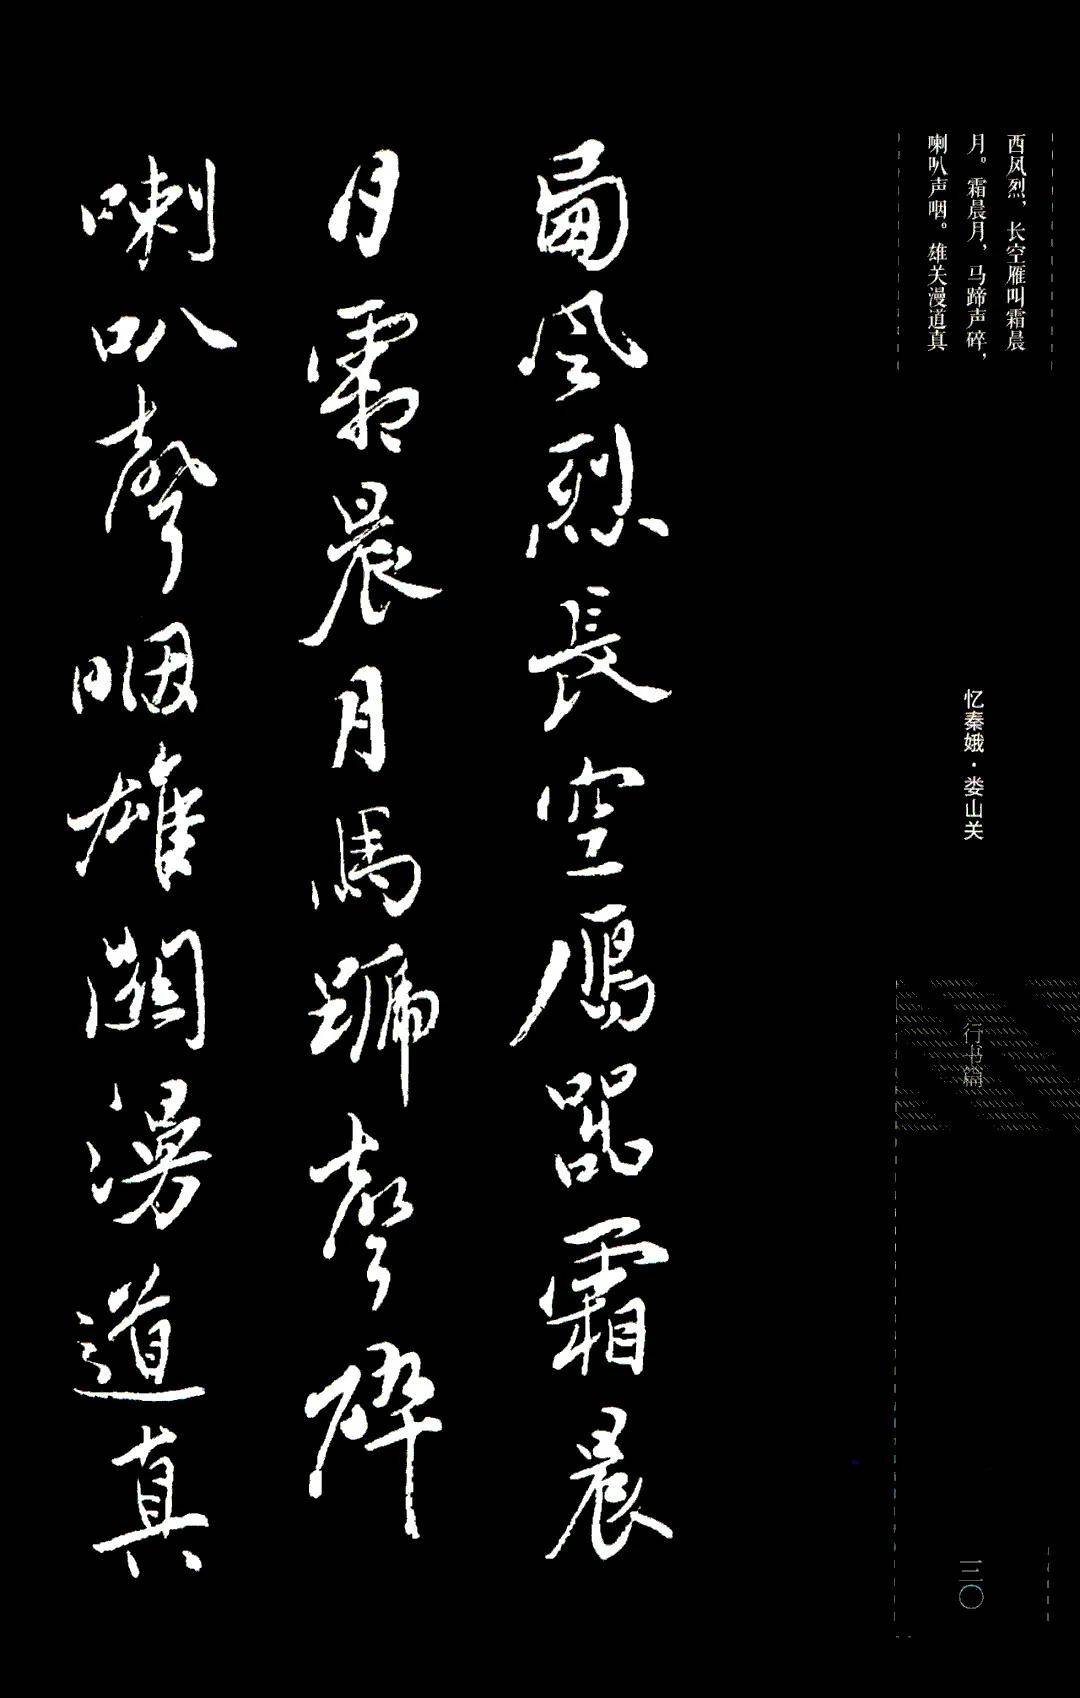 西风烈，长空雁叫霜晨
月。霜晨月，马蹄声碎，
喇叭声咽。雄关漫道真
忆秦娥·娄山关
行书篇
三〇
卥風烈長空鴈嘂霜晨
月霜晨月馬蹄聲碎
喇叭聲咽雄關漫道真